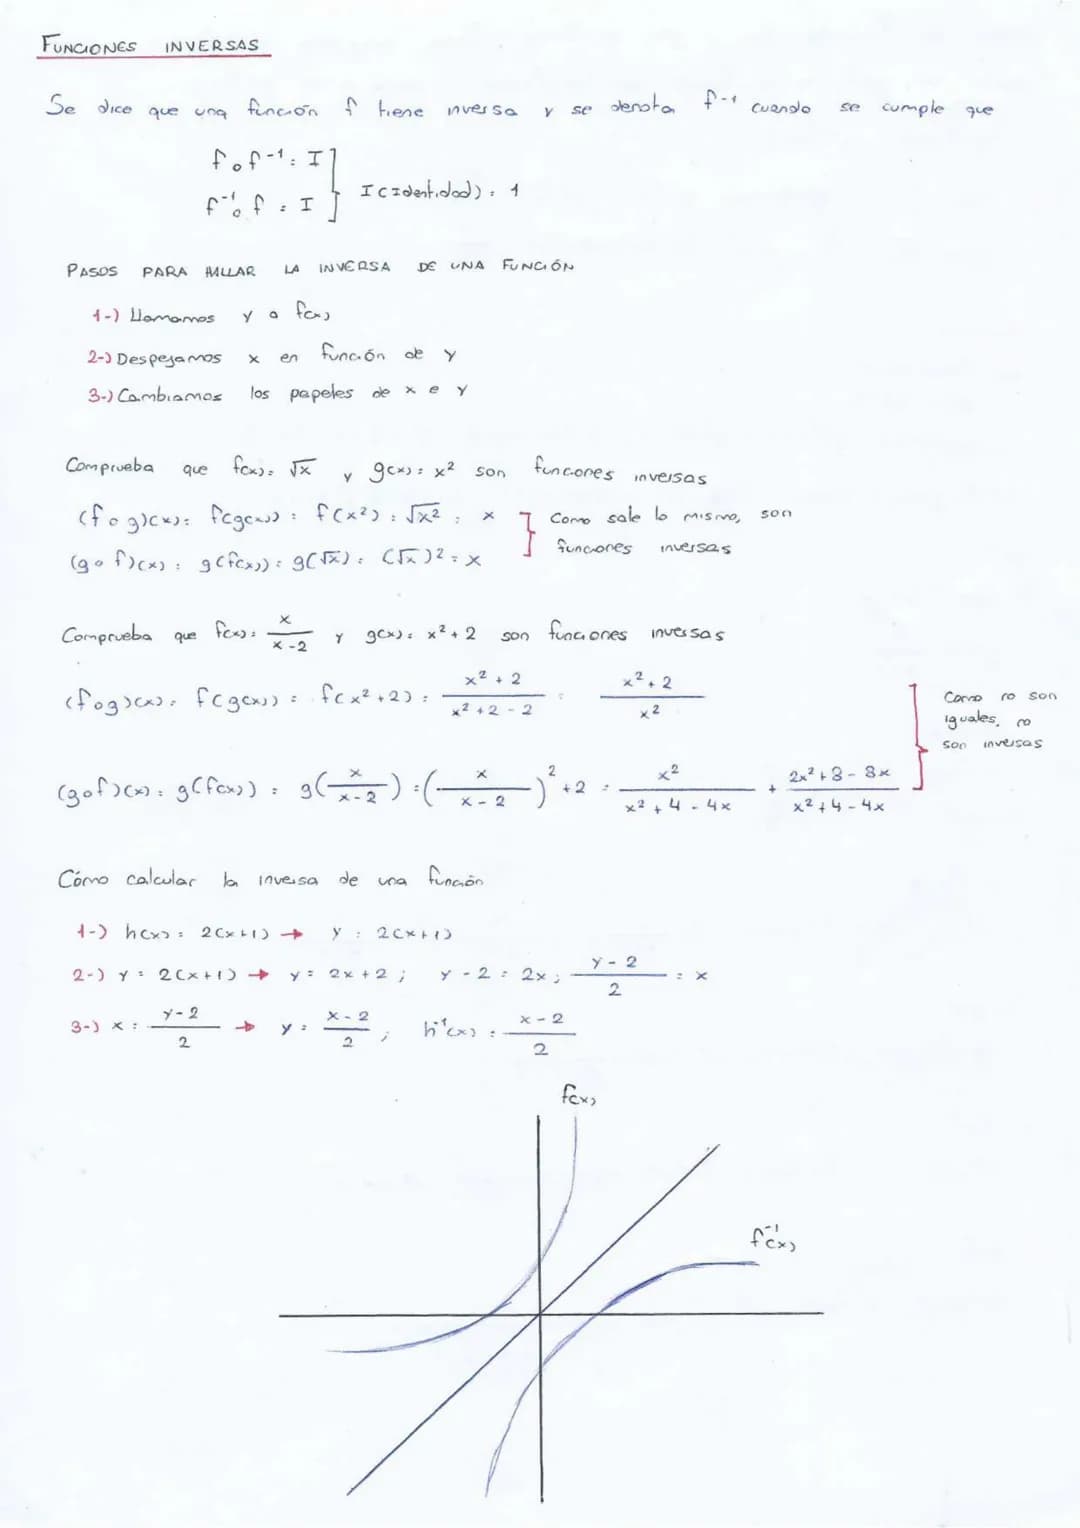 FUNCIONES INVERSAS
Se dice que una función f tiene inversa y se denota f⁻¹ cuando se cumple que
f∘f⁻¹ = I
f⁻¹∘f = I } I (Identidad) = 1
PASOS PARA HALLAR LA INVERSA DE UNA FUNCIÓN
1-) Llamamos y a f(x)
2-) Despejamos x en función de y
3-) Cambiamos los papeles de x e y
Comprueba que f(x) = √x y g(x) = x² son funciones inversas
(f∘g)(x) = f(g(x)) = f(x²) = √x² = x } Como sale lo mismo, son
(g∘f)(x) = g(f(x)) = g(√x) = (√x)² = x funciones inversas
Comprueba que f(x) = x/(x-2) y g(x) = x² + 2 son funciones inversas
(f∘g)(x) = f(g(x)) = f(x² + 2) = (x² + 2)/(x² + 2 - 2) = (x² + 2)/x²
(g∘f)(x) = g(f(x)) = g(x/(x-2)) = (x/(x-2))² + 2 = x²/(x² + 4 - 4x) + (2x² + 8 - 8x)/(x² + 4 - 4x)
Como no son
iguales, no
son inversas
Cómo calcular la inversa de una función
1-) h(x) = 2(x+1) → y = 2(x+1)
2-) y = 2(x+1) → y = 2x + 2 ; y - 2 = 2x ; (y - 2)/2 = x
3-) x = (y - 2)/2 → y = (x - 2)/2 ; h⁻¹(x) = (x - 2)/2
f(x)
f⁻¹(x)